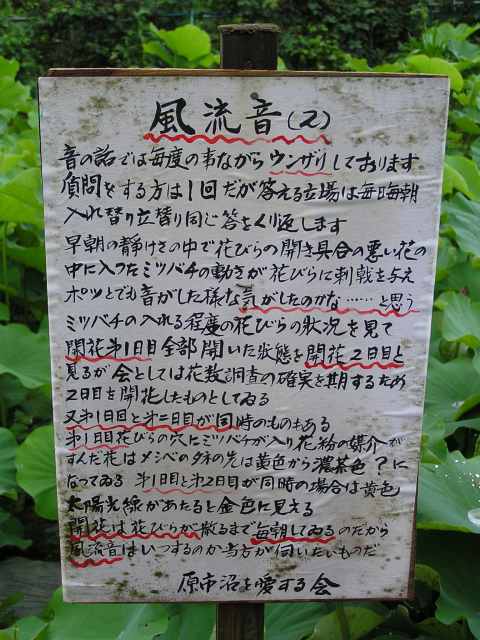 風流音(2)
音の話では毎度の事ながらウンザリしております
質問をする方は1回だが答える立場は毎日毎朝
入れ替り立替り同じ答をくり返します
早朝の静けさの中で花びらの開き具合の悪い花の
中に入ったミツバチの動きが花びらに刺戟を与え
ポッとでも音がした様な気がしたのかな……と思う
ミツバチの入れる程度の花びらの状況を見て
開花第1日目全部開いた状態を開花2日目と
見るが会としては花数調査の確実を期するため
2日目を開花したものとしてゐる
又第1日目と第二日目が同時のものもある
第1日目花びらの穴にミツバチが入り花粉の媒介が
すんだ花はメシベのタネの先は黄色から濃茶色?に
なってゐる 第1日目と第2日目が同時の場合は黄色
太陽光線があたると金色に見える
開花は花びらが散るまで毎朝してゐるのだから
風流音はいつするのか当方が伺いたいものだ
原市沼を愛する会